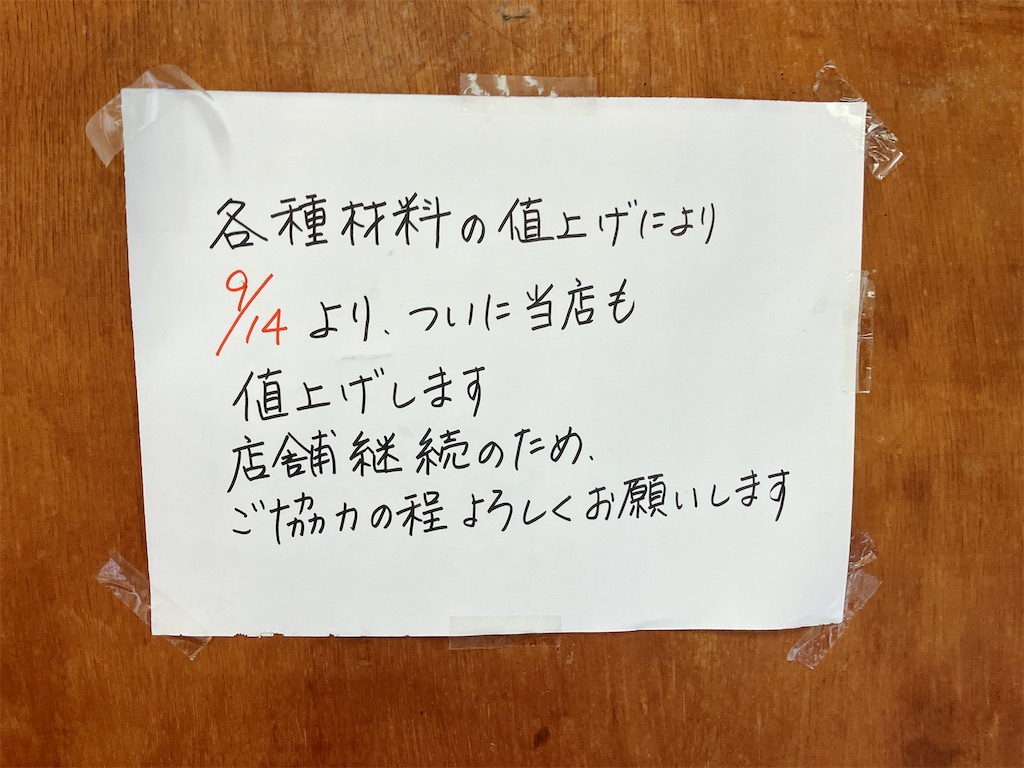 各種材料の値上げにより
9/14より、ついに当店も
値上げします
店舗継続のため、
ご協力の程よろしくお願いします